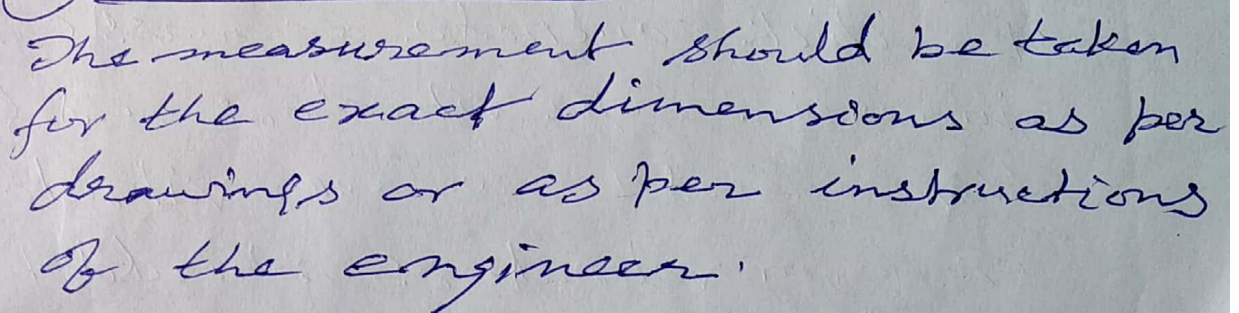 The measurement should be taken
for the exact dimensions as per
drawings or as per instructions
of the engineer.